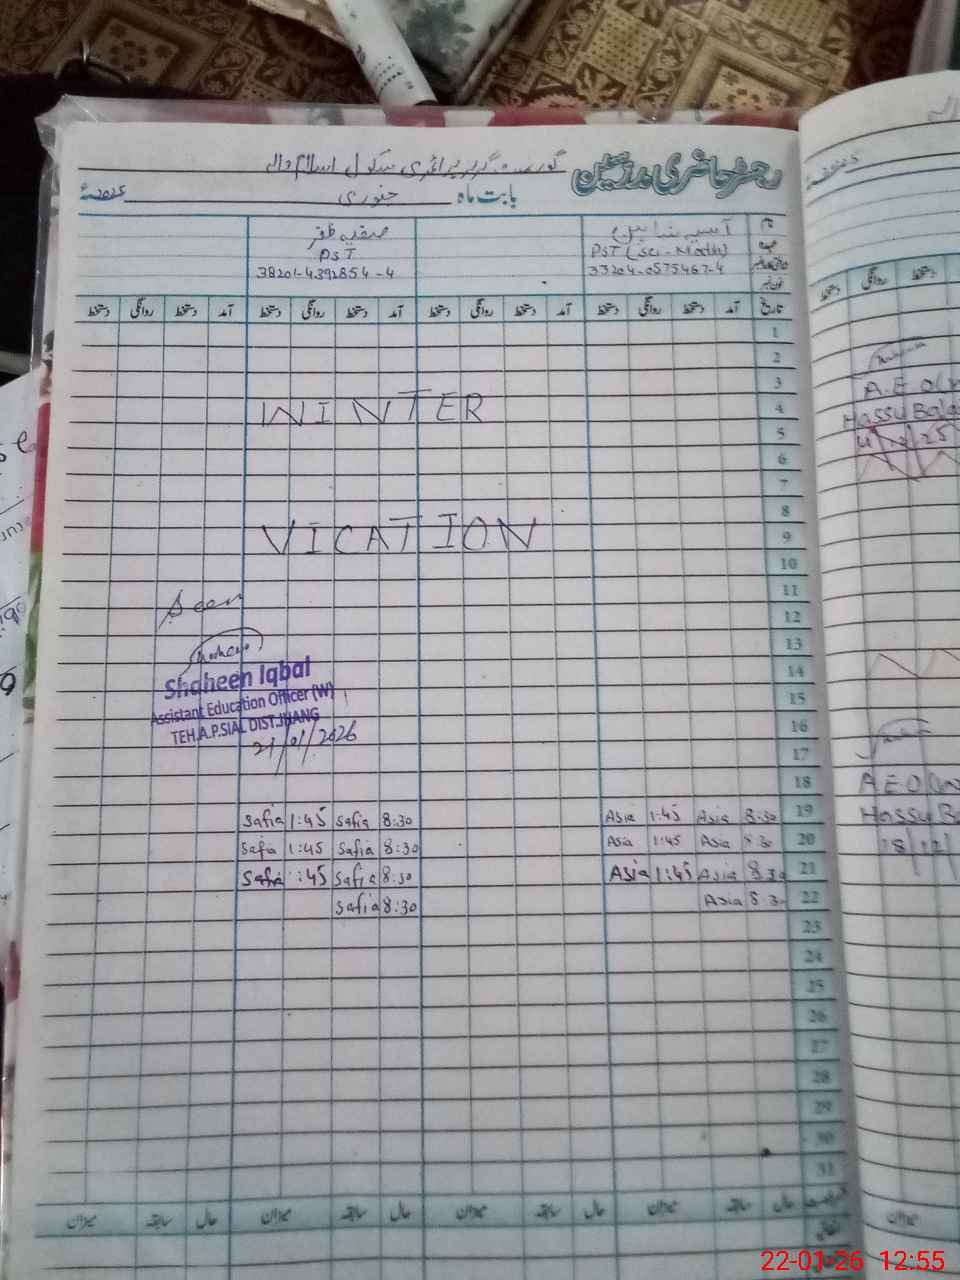 رجسٹر حاضری مدرسین گورنمنٹ گرلز پرائمری سکول اسلام والہ
بابت ماہ جنوری 2025ء
نام آسیہ شاہین صفیہ ظفر
PST (Sci-Math) PST
33204-0575467-4 38201-4392854-4
تاریخ آمد دستخط روانگی دستخط آمد دستخط روانگی دستخط آمد دستخط روانگی دستخط آمد دستخط روانگی دستخط
1
2
3
WINTER 4
5
6
7
8
VICATION 9
10
11
Seen 12
13
Shaheen Iqbal 14
Assistant Education Officer (W) 15
TEH.A.P.SIAL DIST.JHANG 16
21/01/2026 17
18
Safia 1:45 Safia 8:30 Asia 1:45 Asia 8:30 19
Safia 1:45 Safia 8:30 Asia 1:45 Asia 8:30 20
Safia :45 Safia 8:30 Asia 1:45 Asia 8:30 21
Safia 8:30 Asia 8:30 22
23
24
25
26
27
28
29
30
31
حال سابقہ میزان حال سابقہ میزان حال سابقہ میزان حال سابقہ میزان
A.E.O
Hassu
25
A.E.O
Hassu
18/12
میزان
22-01-26 12:55